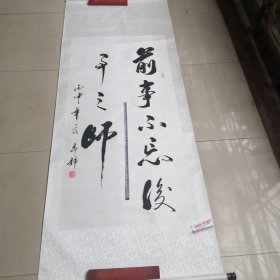 前事不忘後
事之師
丙申年